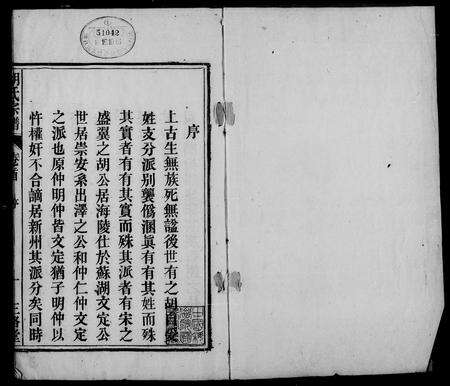 序
上古生無族死無諡後世有之胡自受
姓支分派別襲僞溷眞有有其姓而殊
其實者有有其實而殊其派者有宋之
盛翼之胡公居海陵仕於蘇湖文定公
世居崇安系出澤之公和仲仁仲文定
之派也原仲明仲皆文定猶子明仲以
忤權奸不合謫居新州其派分矣同時
胡氏宗譜
序
51042